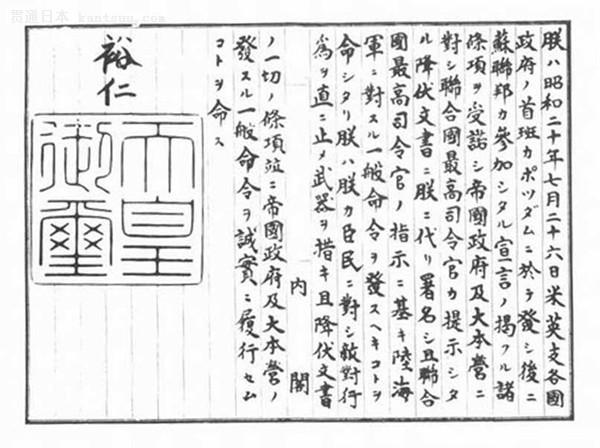 贯通日本 kantsuu.com
朕ハ昭和二十年七月二十六日米英支各國
政府ノ首班カポツダムニ於テ發シ後ニ
蘇聯邦カ參加シタル宣言ノ掲クル諸
條項ヲ受諾シ帝國政府及大本營ニ
對シ聯合國最高司令官カ提示シタ
ル降伏文書ニ朕ニ代リ署名シ且聯合
國最高司令官ノ指示ニ基キ陸海
軍ニ對スル一般命令ヲ發スヘキコトヲ
命シタリ朕ハ朕カ臣民ニ對シ敵對行
爲ヲ直ニ止メ武器ヲ措キ且降伏文書
内閣
ノ一切ノ條項竝ニ帝國政府及大本營ノ
發スル一般命令ヲ誠實ニ履行セム
コトヲ命ス
裕仁
天皇
御璽